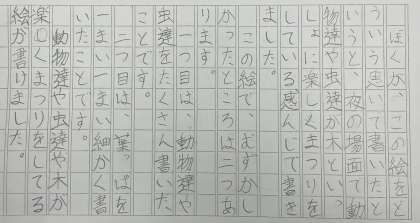 ぼくが、この絵をど
ういう思いで書いたと
いうと、夜の場面で動
物達や虫達が木といっ
しょに楽しくまつりを
している感んじで書き
ました。
この絵で、むずかし
かったところは二つあ
ります。
一つ目は、動物達や
虫達をたくさん書いた
ことです。
二つ目は、葉っぱを
一まい一まい細かく書
いたことです。
動物達や虫達や木が
楽しくまつりをしてる
絵が書けました。